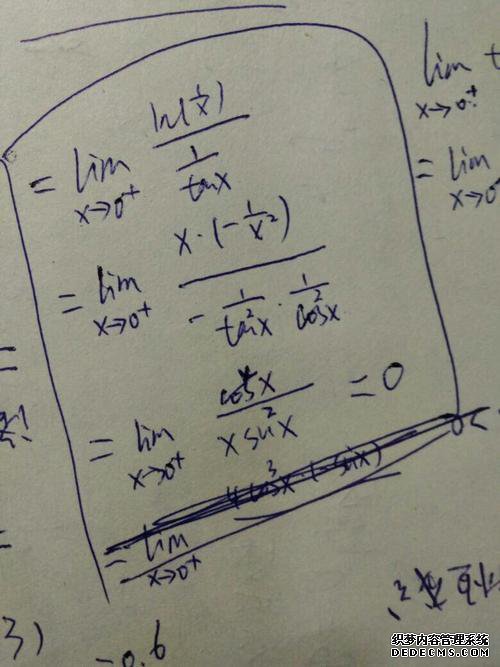 = lim x→0⁺ ln(1/x) / (1/tanx)
= lim x→0⁺ x·(-1/x²) / (-1/tan²x · 1/cos²x)
= lim x→0⁺ cos⁴x / (x sin²x) = 0
= lim x→0⁺ 4cos³x·(-sinx)
lim x→0⁺
= lim x→0⁺
3)
=0.6
织梦内容管理系统
DEDECMS.COM